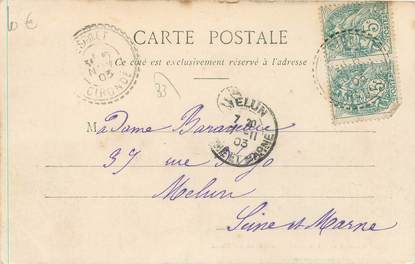 10 €
CARTE POSTALE
Ce côté est exclusivement réservé à l'adresse
33
GIRONDE
03
MELUN
7 30
11
03
SEINE ET MARNE
Madame
37 rue
Melun
Seine et Marne